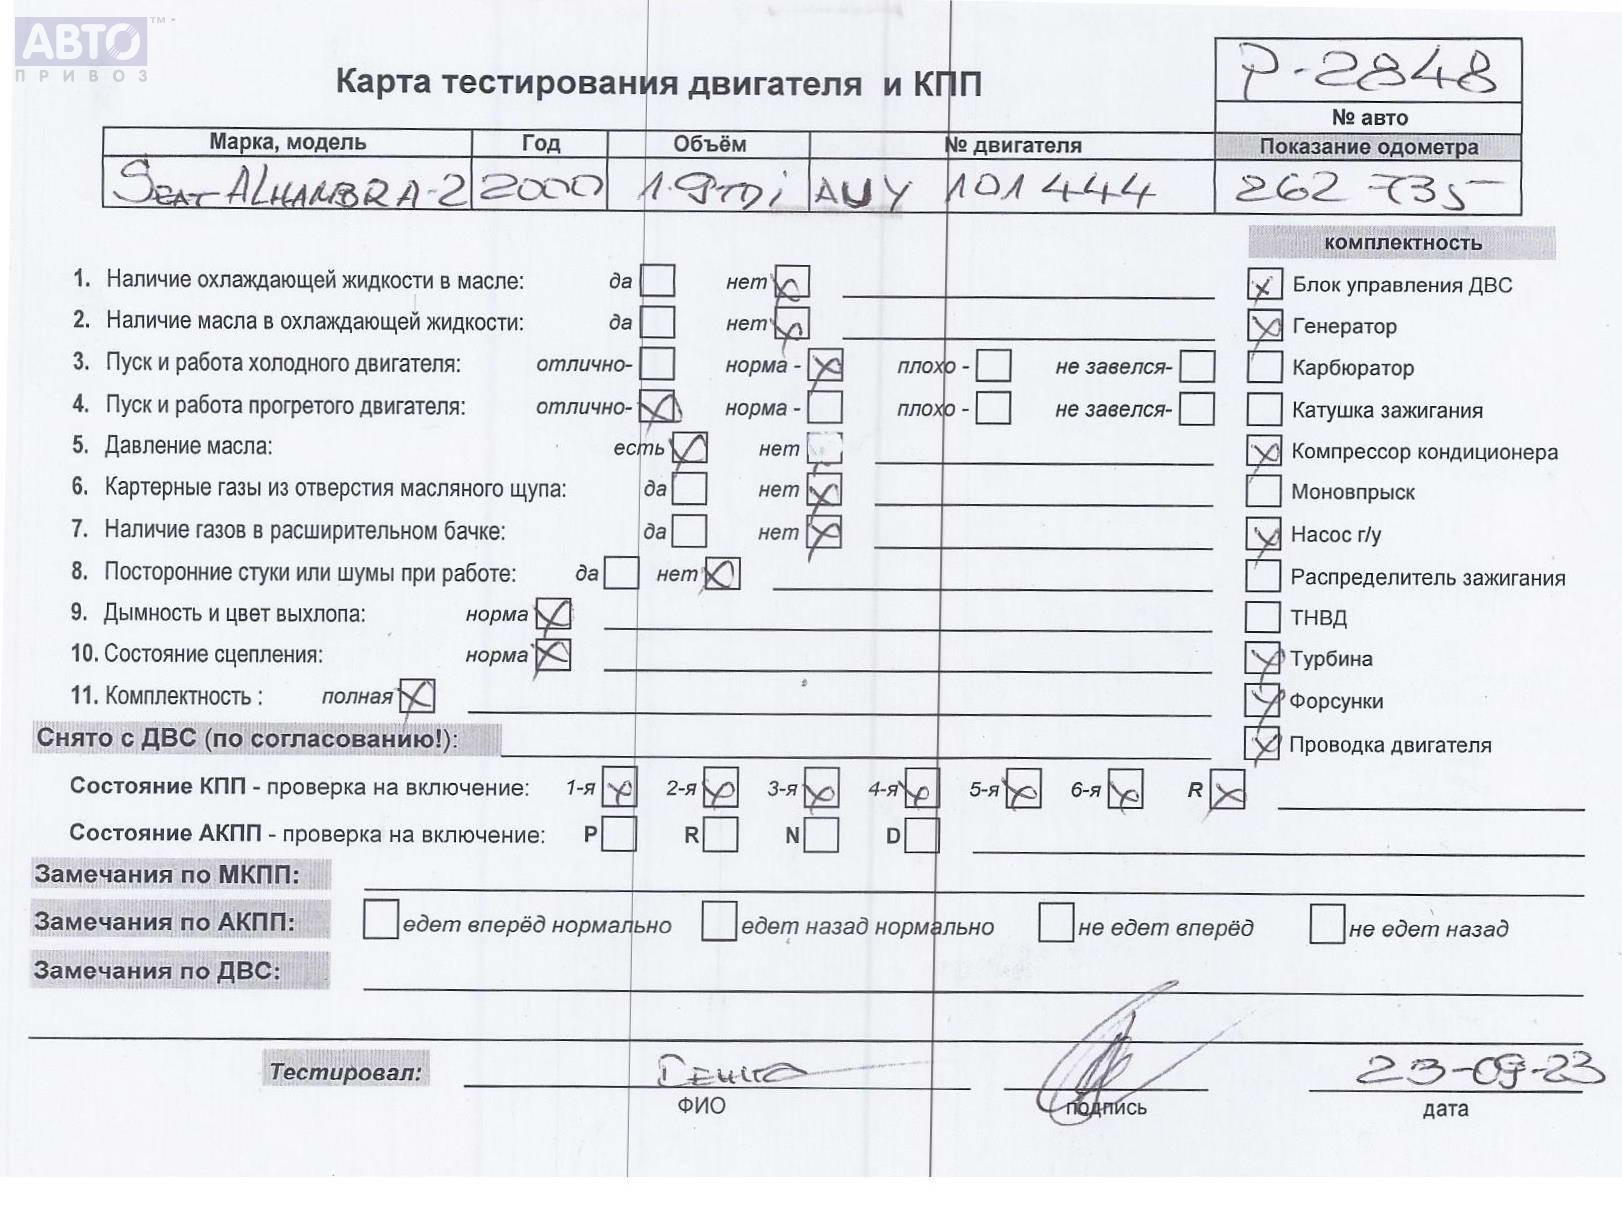 АВТО ™
ПРИВОЗ
Карта тестирования двигателя и КПП
P-2848
№ авто
Марка, модель Год Объём № двигателя Показание одометра
SEAT ALHAMBRA-2 2000 1.9TDi AUY 101444 262 735
комплектность
1. Наличие охлаждающей жидкости в масле: да нет
Блок управления ДВС
2. Наличие масла в охлаждающей жидкости: да нет
Генератор
3. Пуск и работа холодного двигателя: отлично- норма - плохо - не завелся-
Карбюратор
4. Пуск и работа прогретого двигателя: отлично- норма - плохо - не завелся-
Катушка зажигания
5. Давление масла: есть нет
Компрессор кондиционера
6. Картерные газы из отверстия масляного щупа: да нет
Моновпрыск
7. Наличие газов в расширительном бачке: да нет
Насос г/у
8. Посторонние стуки или шумы при работе: да нет
Распределитель зажигания
9. Дымность и цвет выхлопа: норма
ТНВД
10. Состояние сцепления: норма
Турбина
11. Комплектность : полная
Форсунки
Снято с ДВС (по согласованию!):
Проводка двигателя
Состояние КПП - проверка на включение: 1-я 2-я 3-я 4-я 5-я 6-я R
Состояние АКПП - проверка на включение: P R N D
Замечания по МКПП:
Замечания по АКПП: едет вперёд нормально едет назад нормально не едет вперёд не едет назад
Замечания по ДВС:
Тестировал: 23-09-23
ФИО подпись дата